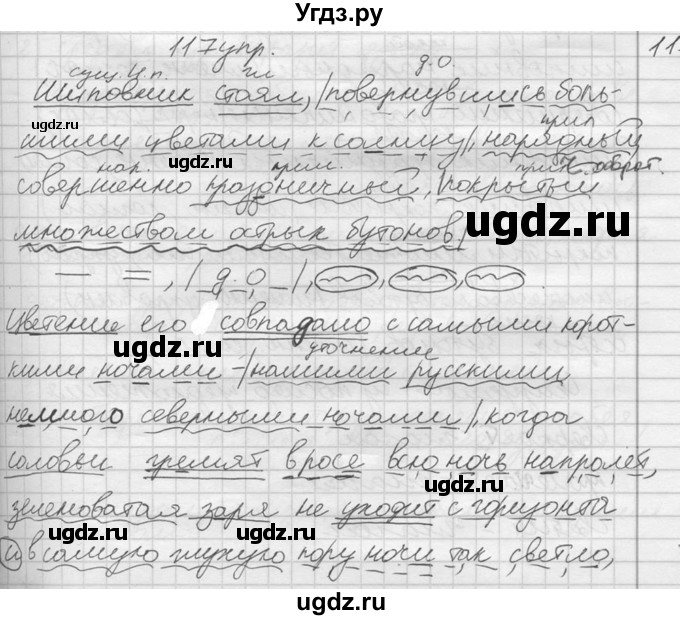 Угдз.ру
117упр.
11
сущ. И.п. гл д.о.
Шиповник стоял, |повернувшись боль-
шими цветами к солнцу|, нарядный
нар. прил. прил
совершенно праздничный, покрытый
множеством острых бутонов|
— =, | д.о |, , , .
Цветение его совпадало с самыми корот-
уточнение
кими ночами - |нашими русскими
немного северными ночами|, когда
соловьи гремят в росе всю ночь напролёт,
зеленоватая заря не уходит с горизонта
и в самую глухую пору ночи так светло,
ugdz.ru
ugdz.ru
ugdz.ru
ugdz.ru
ugdz.ru
ugdz.ru
ugdz.ru
ugdz.ru
ugdz.ru
ugdz.ru